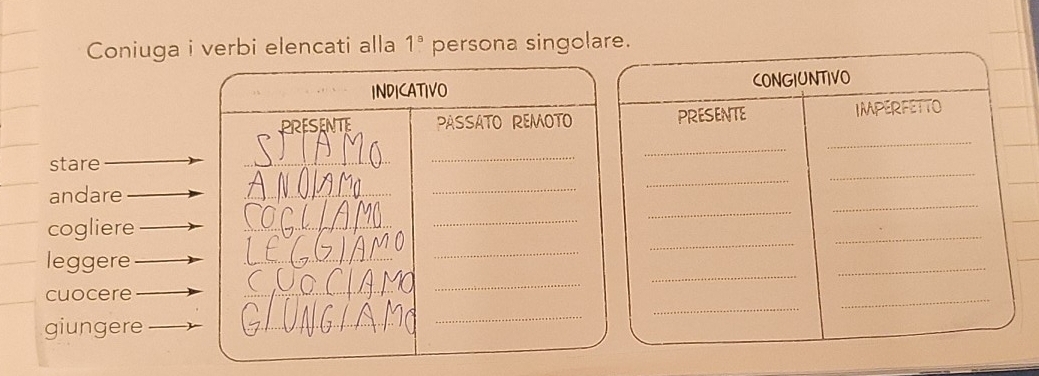 Coniuga i verbi elencati alla 1ª persona singolare.
INDICATIVO
CONGIUNTIVO
PRESENTE
PASSATO REMOTO
PRESENTE
IMPERFETTO
stare
STIAMO
andare
ANDIAMO
cogliere
COGLIAMO
leggere
LEGGIAMO
cuocere
CUOCIAMO
giungere
GIUNGIAMO